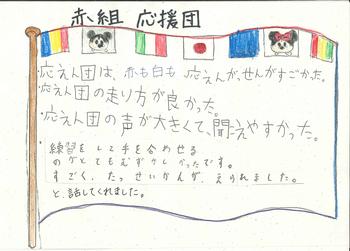 赤組 応援団
・応えん団は、赤も白も応えんがっせんがすごかった。
・応えん団の走り方が良かった。
・応えん団の声が大きくて、聞えやすかった。
練習をして手を合わせる
のがとてもむずかしかったです。
すごく、たっせいかんが、えられました。
と、話してくれました。